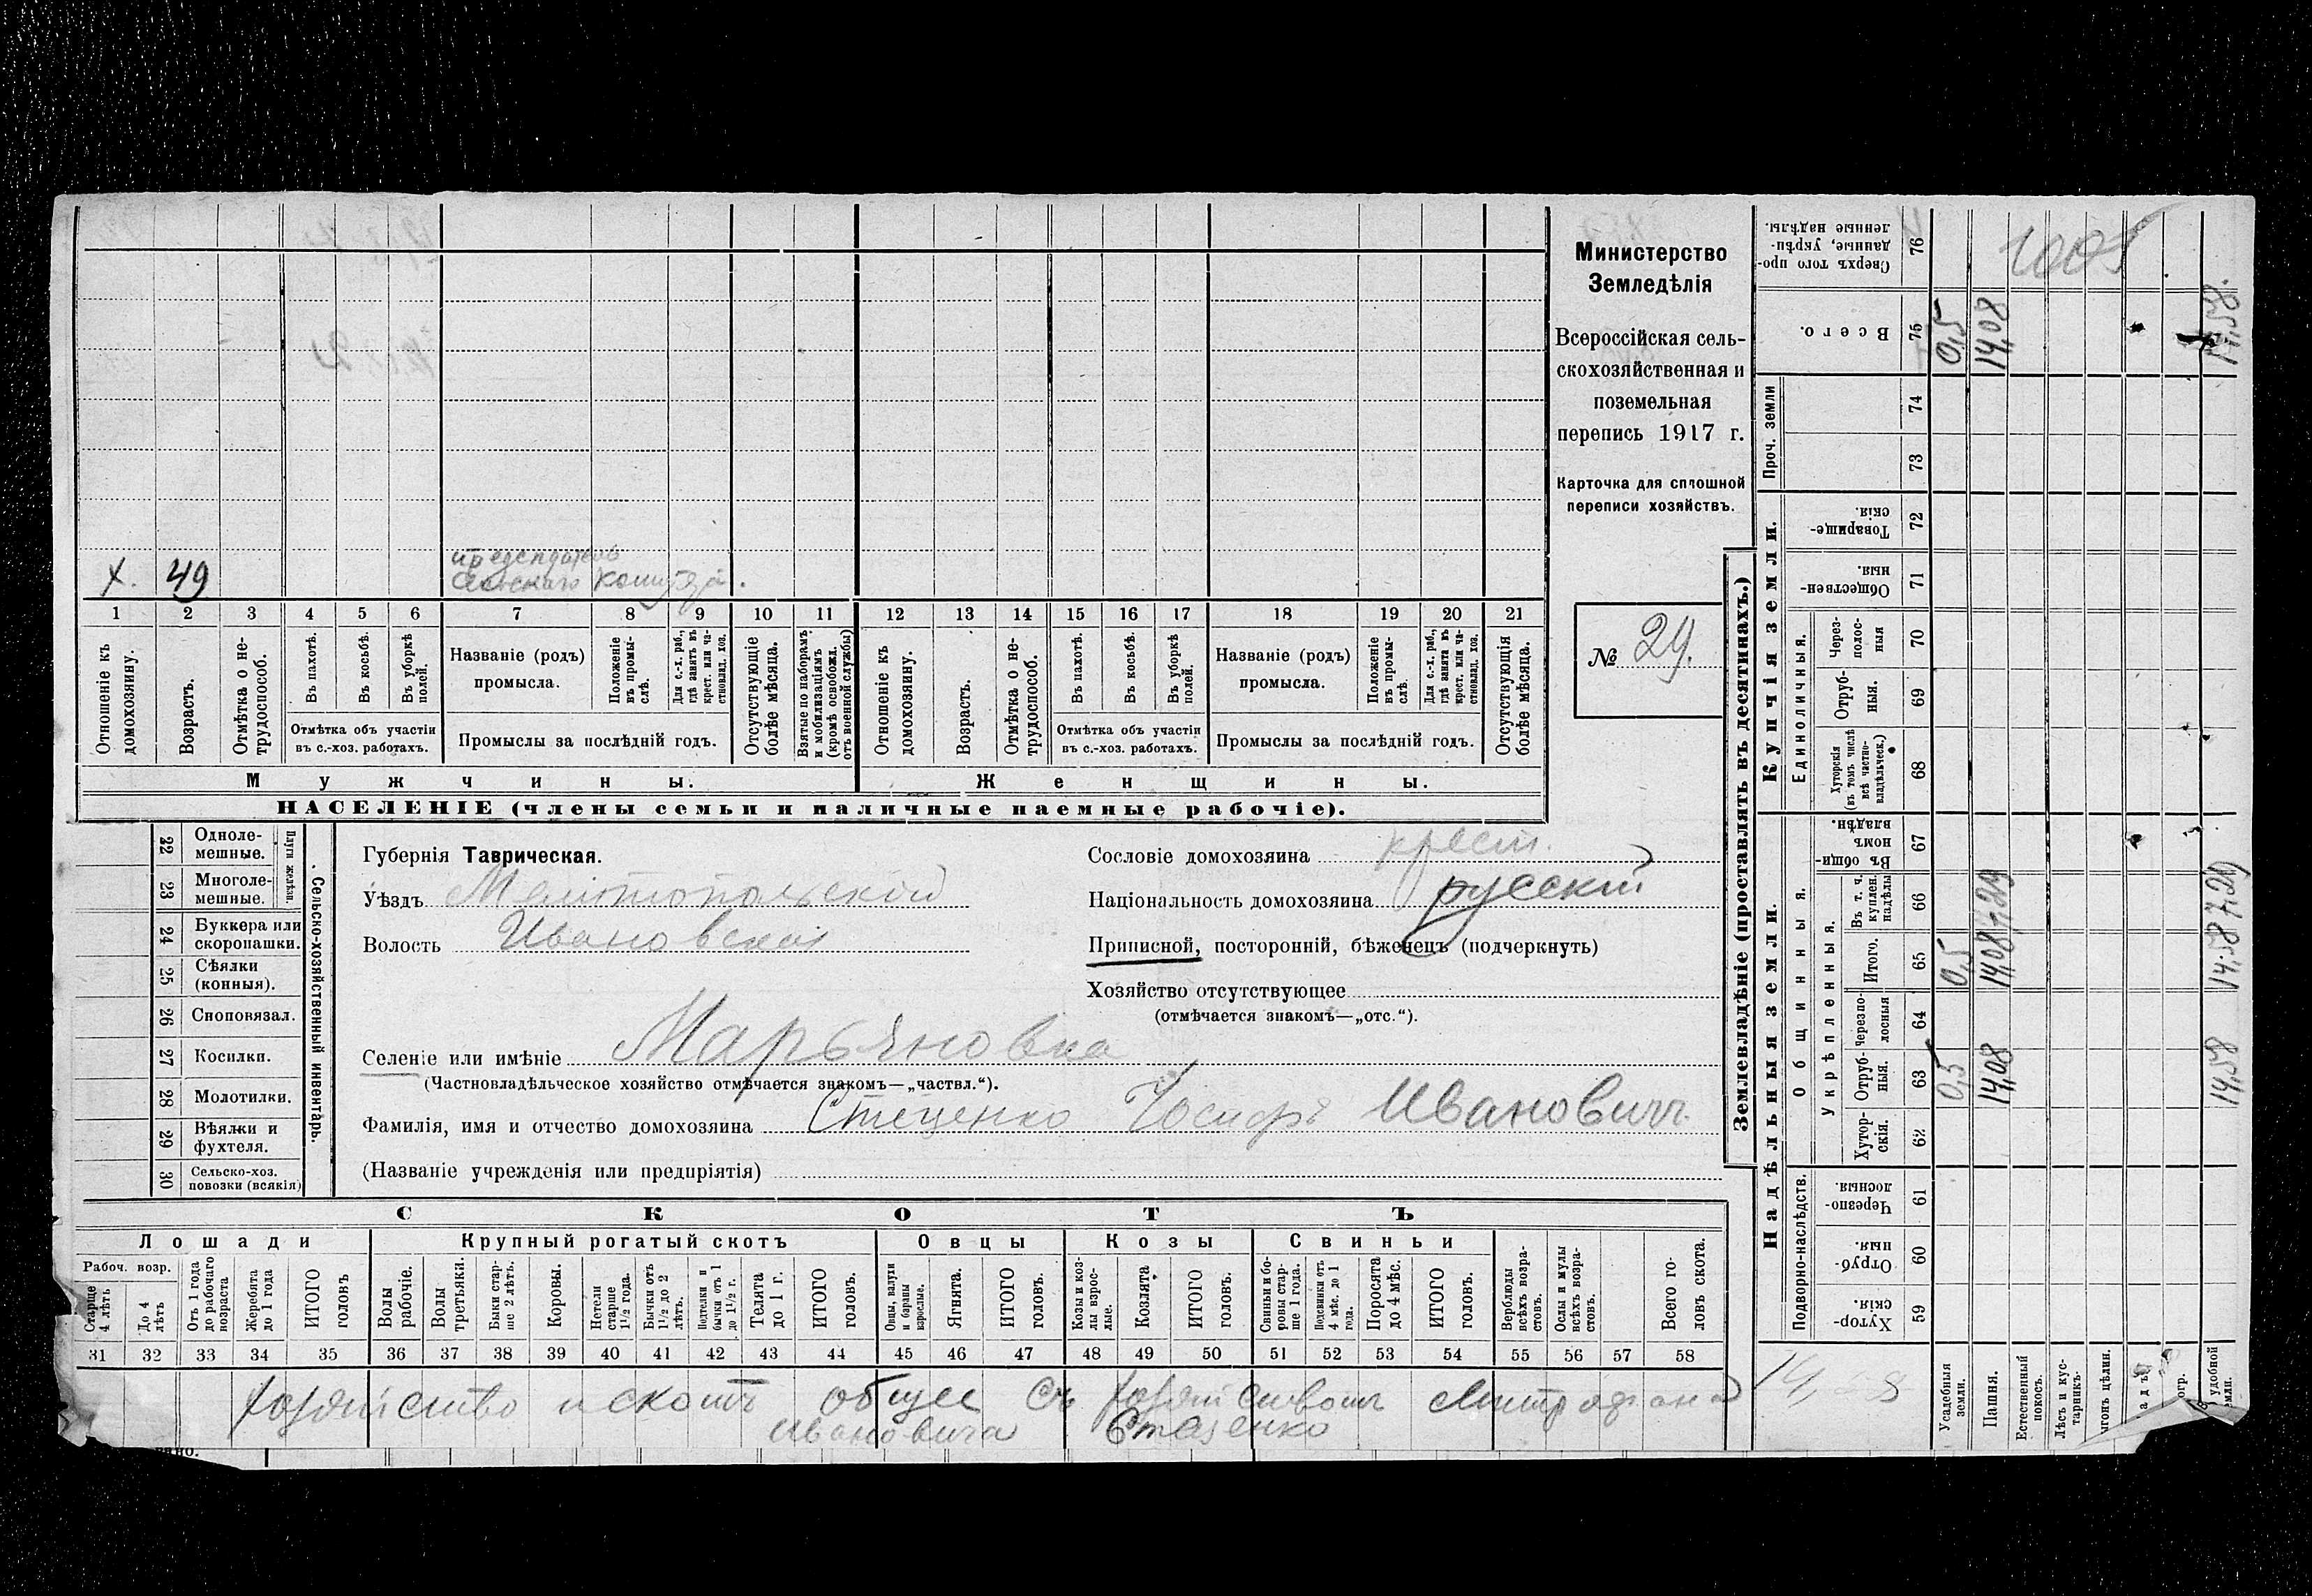 Министерство
Земледѣлія
Всероссійская сель-
скохозяйственная и
поземельная
перепись 1917 г.
Карточка для сплошной
переписи хозяйствъ.
№ 29.
X. 49
Сельскаго
1 2 3 4 5 6 7 8 9 10 11 12 13 14 15 16 17 18 19 20 21
Отношеніе къ домохозяину.
Возрастъ.
Отмѣтка о не-трудоспособ.
Въ пахотѣ.
Въ косьбѣ.
Въ уборкѣ полей.
Отмѣтка объ участіи
въ с.-хоз. работахъ.
Названіе (родъ)
промысла.
Положеніе въ промы-слѣ.
Для с.-х. раб., гдѣ занятъ въ крест. или ча-стновлад. хоз.
Промыслы за послѣдній годъ.
Отсутствующіе болѣе мѣсяца.
Взятые по наборамъ и мобилизаціямъ (кромѣ освобожд. отъ военной службы)
Отношеніе къ домохозяину.
Возрастъ.
Отмѣтка о не-трудоспособ.
Въ пахотѣ.
Въ косьбѣ.
Въ уборкѣ полей.
Отмѣтка объ участіи
въ с.-хоз. работахъ.
Названіе (родъ)
промысла.
Положеніе въ промы-слѣ.
Для с.-х. раб., гдѣ занята въ крест. или ча-стновлад. хоз.
Промыслы за послѣдній годъ.
Отсутствующія болѣе мѣсяца.
Мужчины.
Женщины.
НАСЕЛЕНІЕ (члены семьи и наличные наемные рабочіе).
Сельско-хозяйственный инвентарь.
Плуги желѣзн.
22 Одноле-мешные.
23 Многоле-мешные.
24 Буккера или скоропашки.
25 Сѣялки (конныя).
26 Сноповязал.
27 Косилки.
28 Молотилки.
29 Вѣялки и фухтеля.
30 Сельско-хоз. повозки (всякія)
Губернія Таврическая.
Уѣздъ Мелитопольскій
Волость Ивановская
Сословіе домохозяина крест.
Національность домохозяина русскій
Приписной, посторонній, бѣженецъ (подчеркнуть)
Хозяйство отсутствующее
(отмѣчается знакомъ—„отс.“).
Селеніе или имѣніе Марьяновка
(Частновладѣльческое хозяйство отмѣчается знакомъ—„частвл.“).
Фамилія, имя и отчество домохозяина Стеценко Іосифъ Ивановичъ
(Названіе учрежденія или предпріятія)
СКОТЪ
Лошади
Крупный рогатый скотъ
Овцы
Козы
Свиньи
Рабоч. возр.
Старше 4 лѣтъ
До 4 лѣтъ
Отъ 1 года до рабочаго возраста
Жеребята до 1 года
ИТОГО головъ
Волы рабочіе.
Волы третьяки.
Быки стар-ше 2 лѣтъ.
Коровы.
Нетели старше 1½ года.
Бычки отъ 1½ до 2 лѣтъ.
Подтелки и бычки отъ 1 до 1½ г.
Телята до 1 г.
ИТОГО головъ.
Овцы, валухи и бараны взрослые.
Ягнята.
ИТОГО головъ.
Козы и коз-лы взрос-лые.
Козлята
ИТОГО головъ.
Свиньи и бо-ровы стар-ше 1 года.
Подсвинки отъ 4 мѣс. до 1 года.
Поросята до 4 мѣс.
ИТОГО головъ.
Верблюды всѣхъ возра-стовъ.
Ослы и мулы всѣхъ возра-стовъ.
Всего го-ловъ скота.
31 32 33 34 35 36 37 38 39 40 41 42 43 44 45 46 47 48 49 50 51 52 53 54 55 56 57 58
хозяйство и скотъ общее съ хозяйствомъ Митрофана
Ивановича
Землевладѣніе (проставлять въ десятинахъ.)
Купчія земли.
Надѣльныя земли.
Проч. земли
Единоличныя.
Общинныя.
Укрѣпленныя.
Подворно-наслѣдств.
76 Сверхъ того про-данные, укрѣп-ленные надѣлы.
75 Всего. 0,5 14,08 14,58.
74
73
72 Товарище-скія.
71 Обществен-ныя.
70 Через-полос-ныя
69 Отруб-ныя.
68 Хуторскія (въ томъ числѣ всѣ частно-владѣльческ.)
67 Въ общи-номъ владѣн.
66 Въ т. ч. куплен. надѣлы 7,29 7,29
65 Итого. 0,5 14,08 14,58
64 Черезпо-лосныя
63 Отруб-ныя. 0,5 14,08 14,58
62 Хутор-скія.
61 Черезпо-лосныя.
60 Отруб-ныя.
59 Хутор-скія.
Усадебныя земли.
Пашня.
Естественный покосъ.
Лѣсъ и кус-тарникъ.
удобной